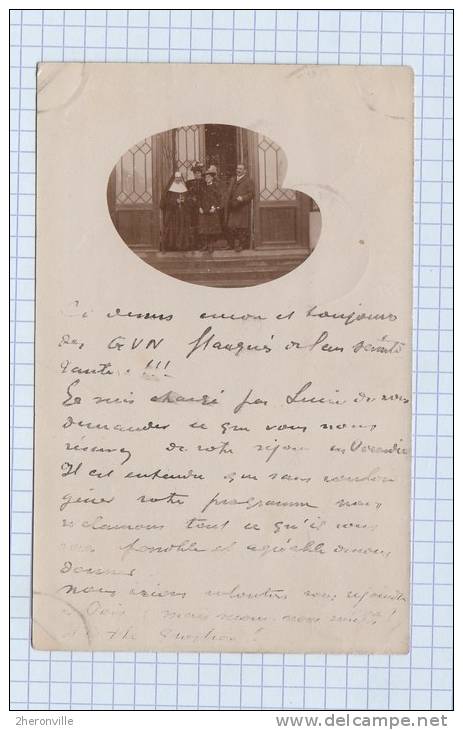 et toujours
des GVN flanqués de leur sainte
tante !!!
Je suis chargé par Lucie de vous
demander ce que vous nous
de votre séjour en
Il est entendu que sans vouloir
gêner votre programme nous
réclamons tout ce qu'il vous
sera possible et agréable de nous
donner
nous irions volontiers vous rejoindre
à mais nous
is the question !
2heronville
www.delcampe.net